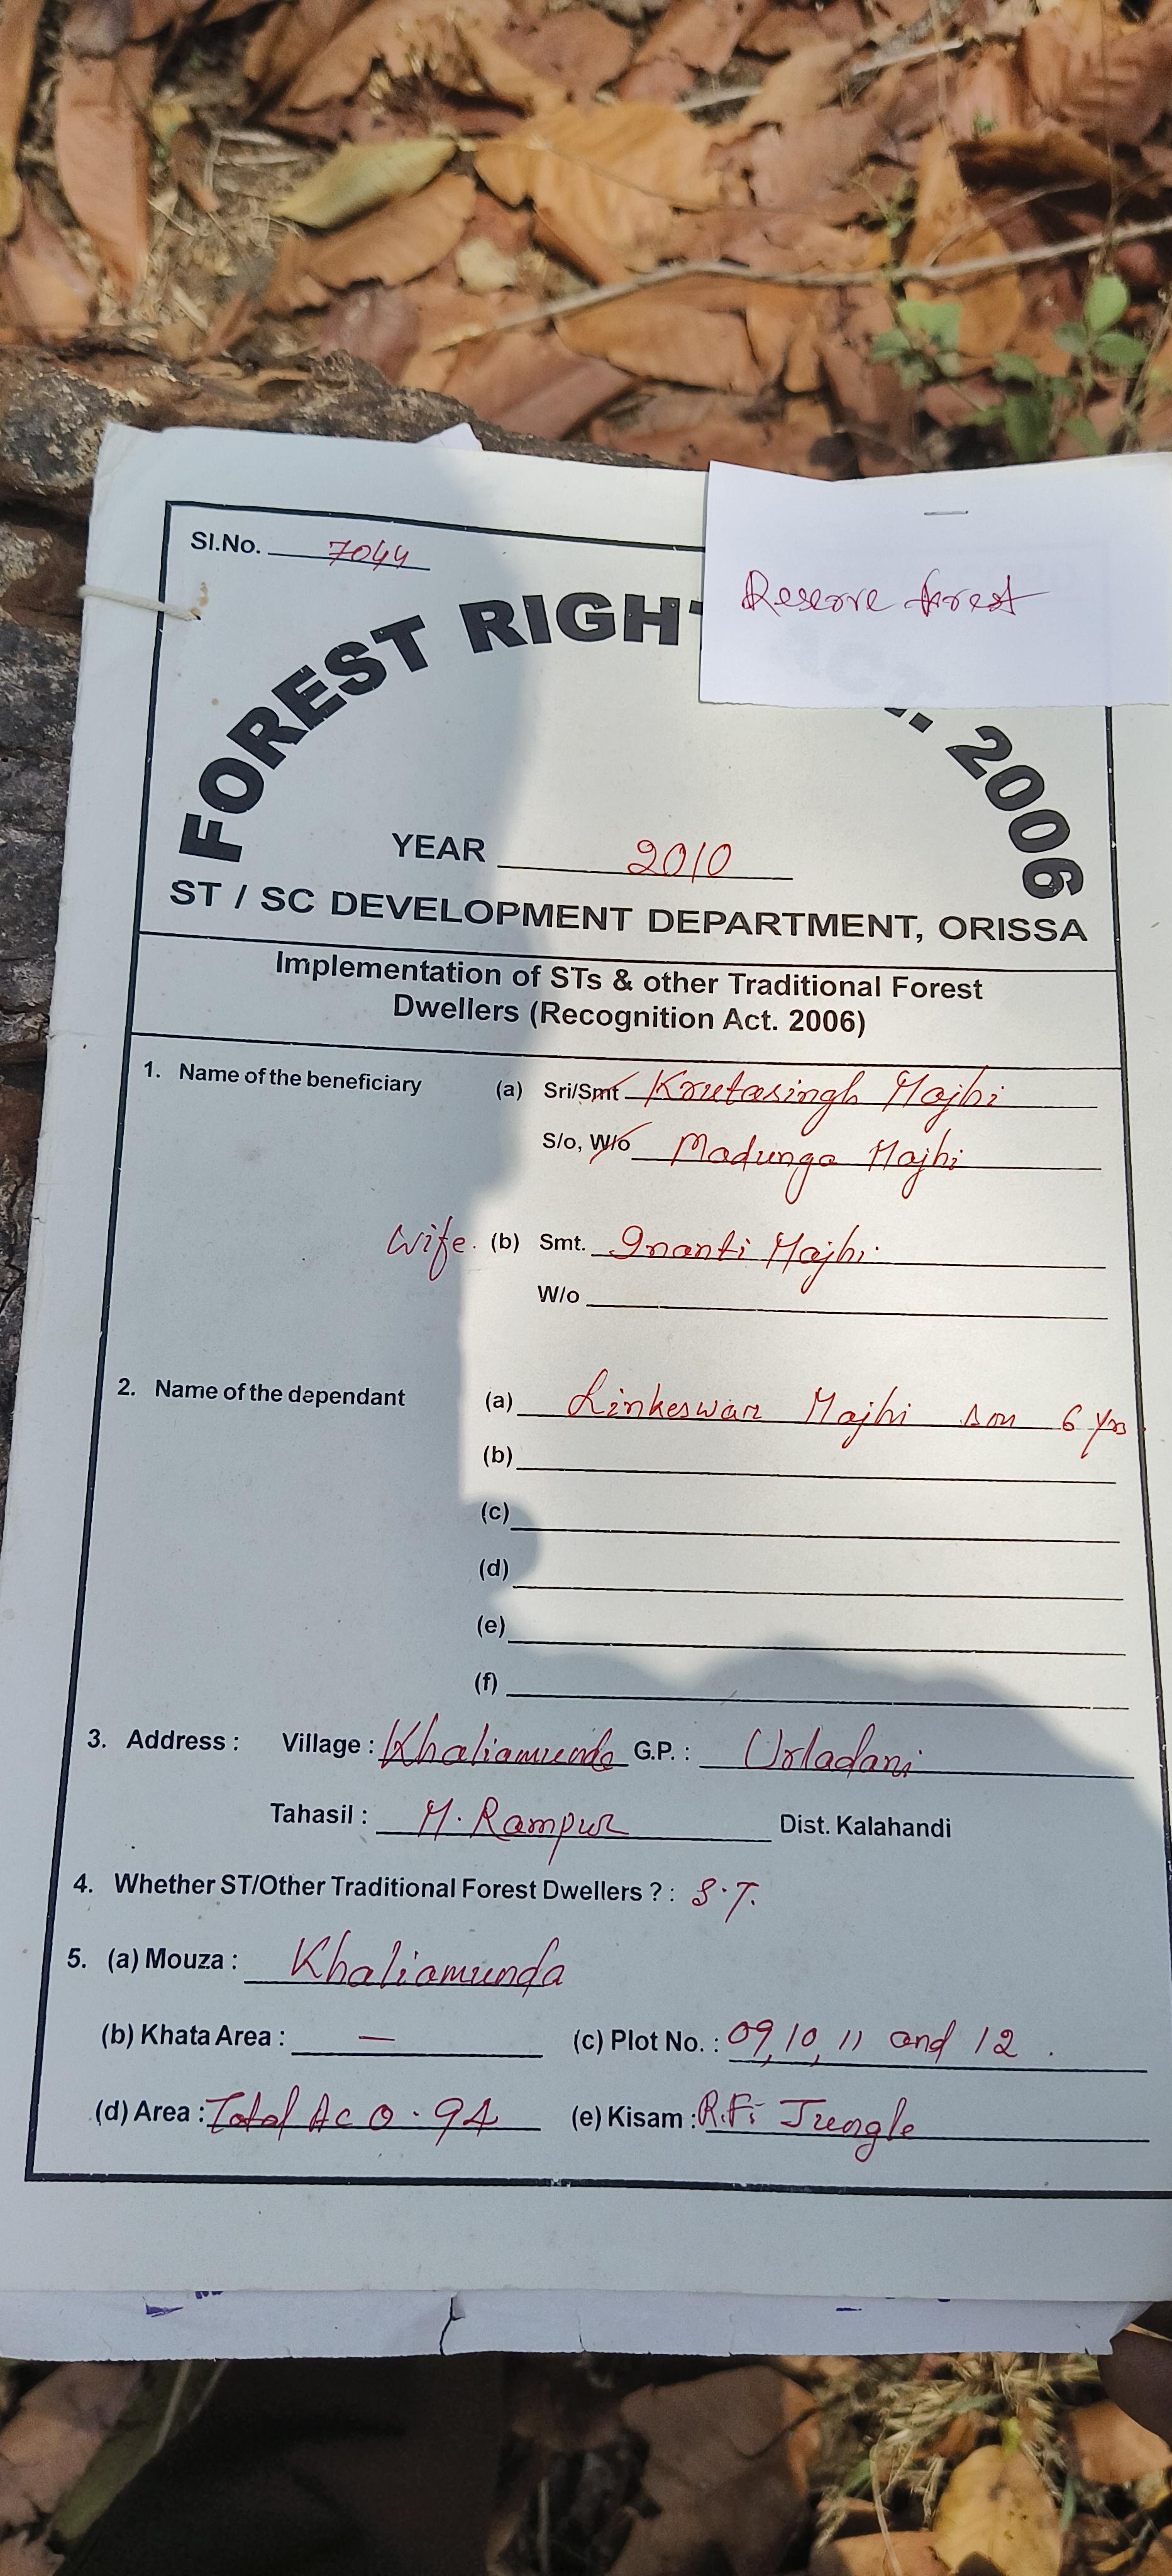 Sl.No. 7044
Reserve forest
FOREST RIGHT ACT. 2006
YEAR 2010
ST / SC DEVELOPMENT DEPARTMENT, ORISSA
Implementation of STs & other Traditional Forest
Dwellers (Recognition Act. 2006)
1. Name of the beneficiary (a) Sri/Smt Krutasingh Majhi
S/o, W/o Madunga Majhi
Wife. (b) Smt. Inanti Majhi
W/o
2. Name of the dependant (a) Linkeswar Majhi son 6 yrs
(b)
(c)
(d)
(e)
(f)
3. Address : Village : Khaliamunda G.P. : Urladani
Tahasil : M. Rampur Dist. Kalahandi
4. Whether ST/Other Traditional Forest Dwellers ? : S.T.
5. (a) Mouza : Khaliamunda
(b) Khata Area : — (c) Plot No. : 09, 10, 11 and 12.
(d) Area : Total Ac 0.94 (e) Kisam : R.F. Jungle